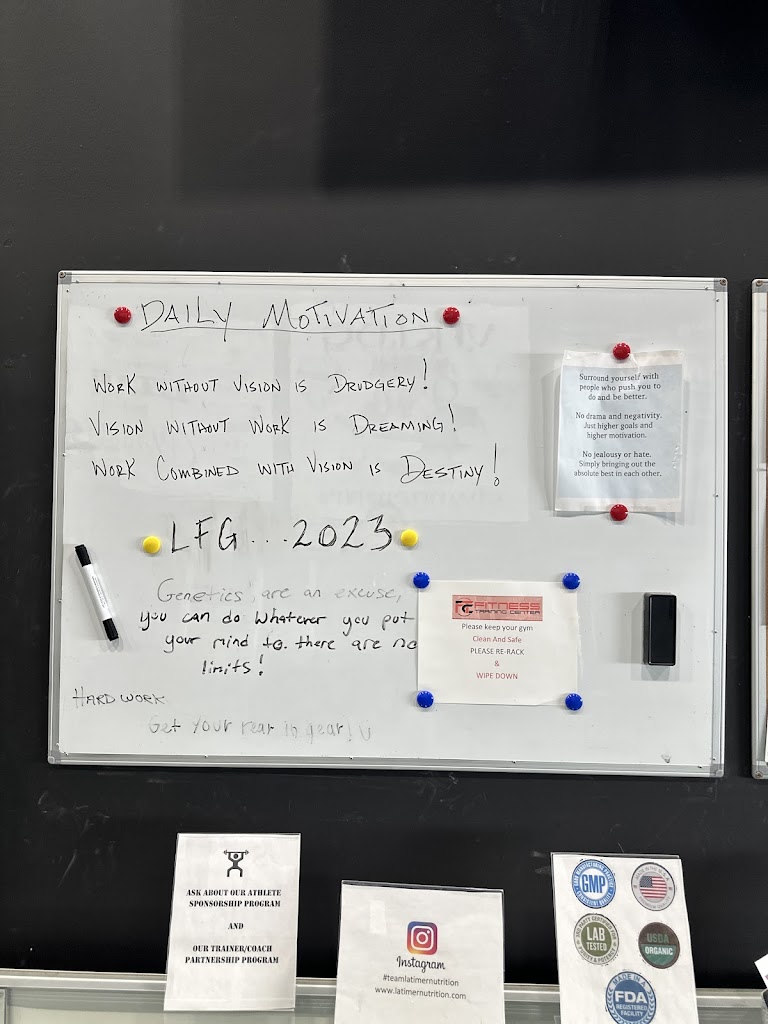 DAILY MOTIVATION
WORK WITHOUT VISION IS DRUDGERY!
VISION WITHOUT WORK IS DREAMING!
WORK COMBINED WITH VISION IS DESTINY!
LFG...2023
Genetics are an excuse,
you can do whatever you put
your mind to. there are no
limits!
HARD WORK
Get your rear in gear!
Surround yourself with
people who push you to
do and be better.
No drama and negativity.
Just higher goals and
higher motivation.
No jealousy or hate.
Simply bringing out the
absolute best in each other.
FITNESS
TRAINING CENTER
Please keep your gym
Clean And Safe
PLEASE RE-RACK
&
WIPE DOWN
ASK ABOUT OUR ATHLETE
SPONSORSHIP PROGRAM
AND
OUR TRAINER/COACH
PARTNERSHIP PROGRAM
Instagram
#teamlatimernutrition
www.latimernutrition.com
GMP
LAB
TESTED
USDA
ORGANIC
MADE IN A
FDA
REGISTERED
FACILITY